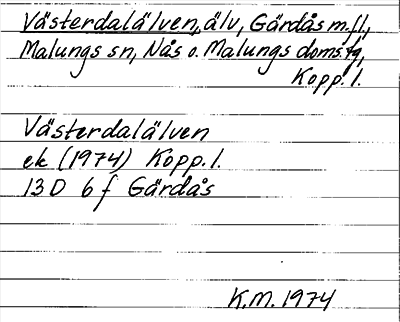 Västerdalälven, älv, Gärdås m.fl.,
Malungs sn, Nås o. Malungs doms.tg,
Kopp. l.
Västerdalälven
ek (1974) Kopp. l.
13D 6f Gärdås
K.M. 1974